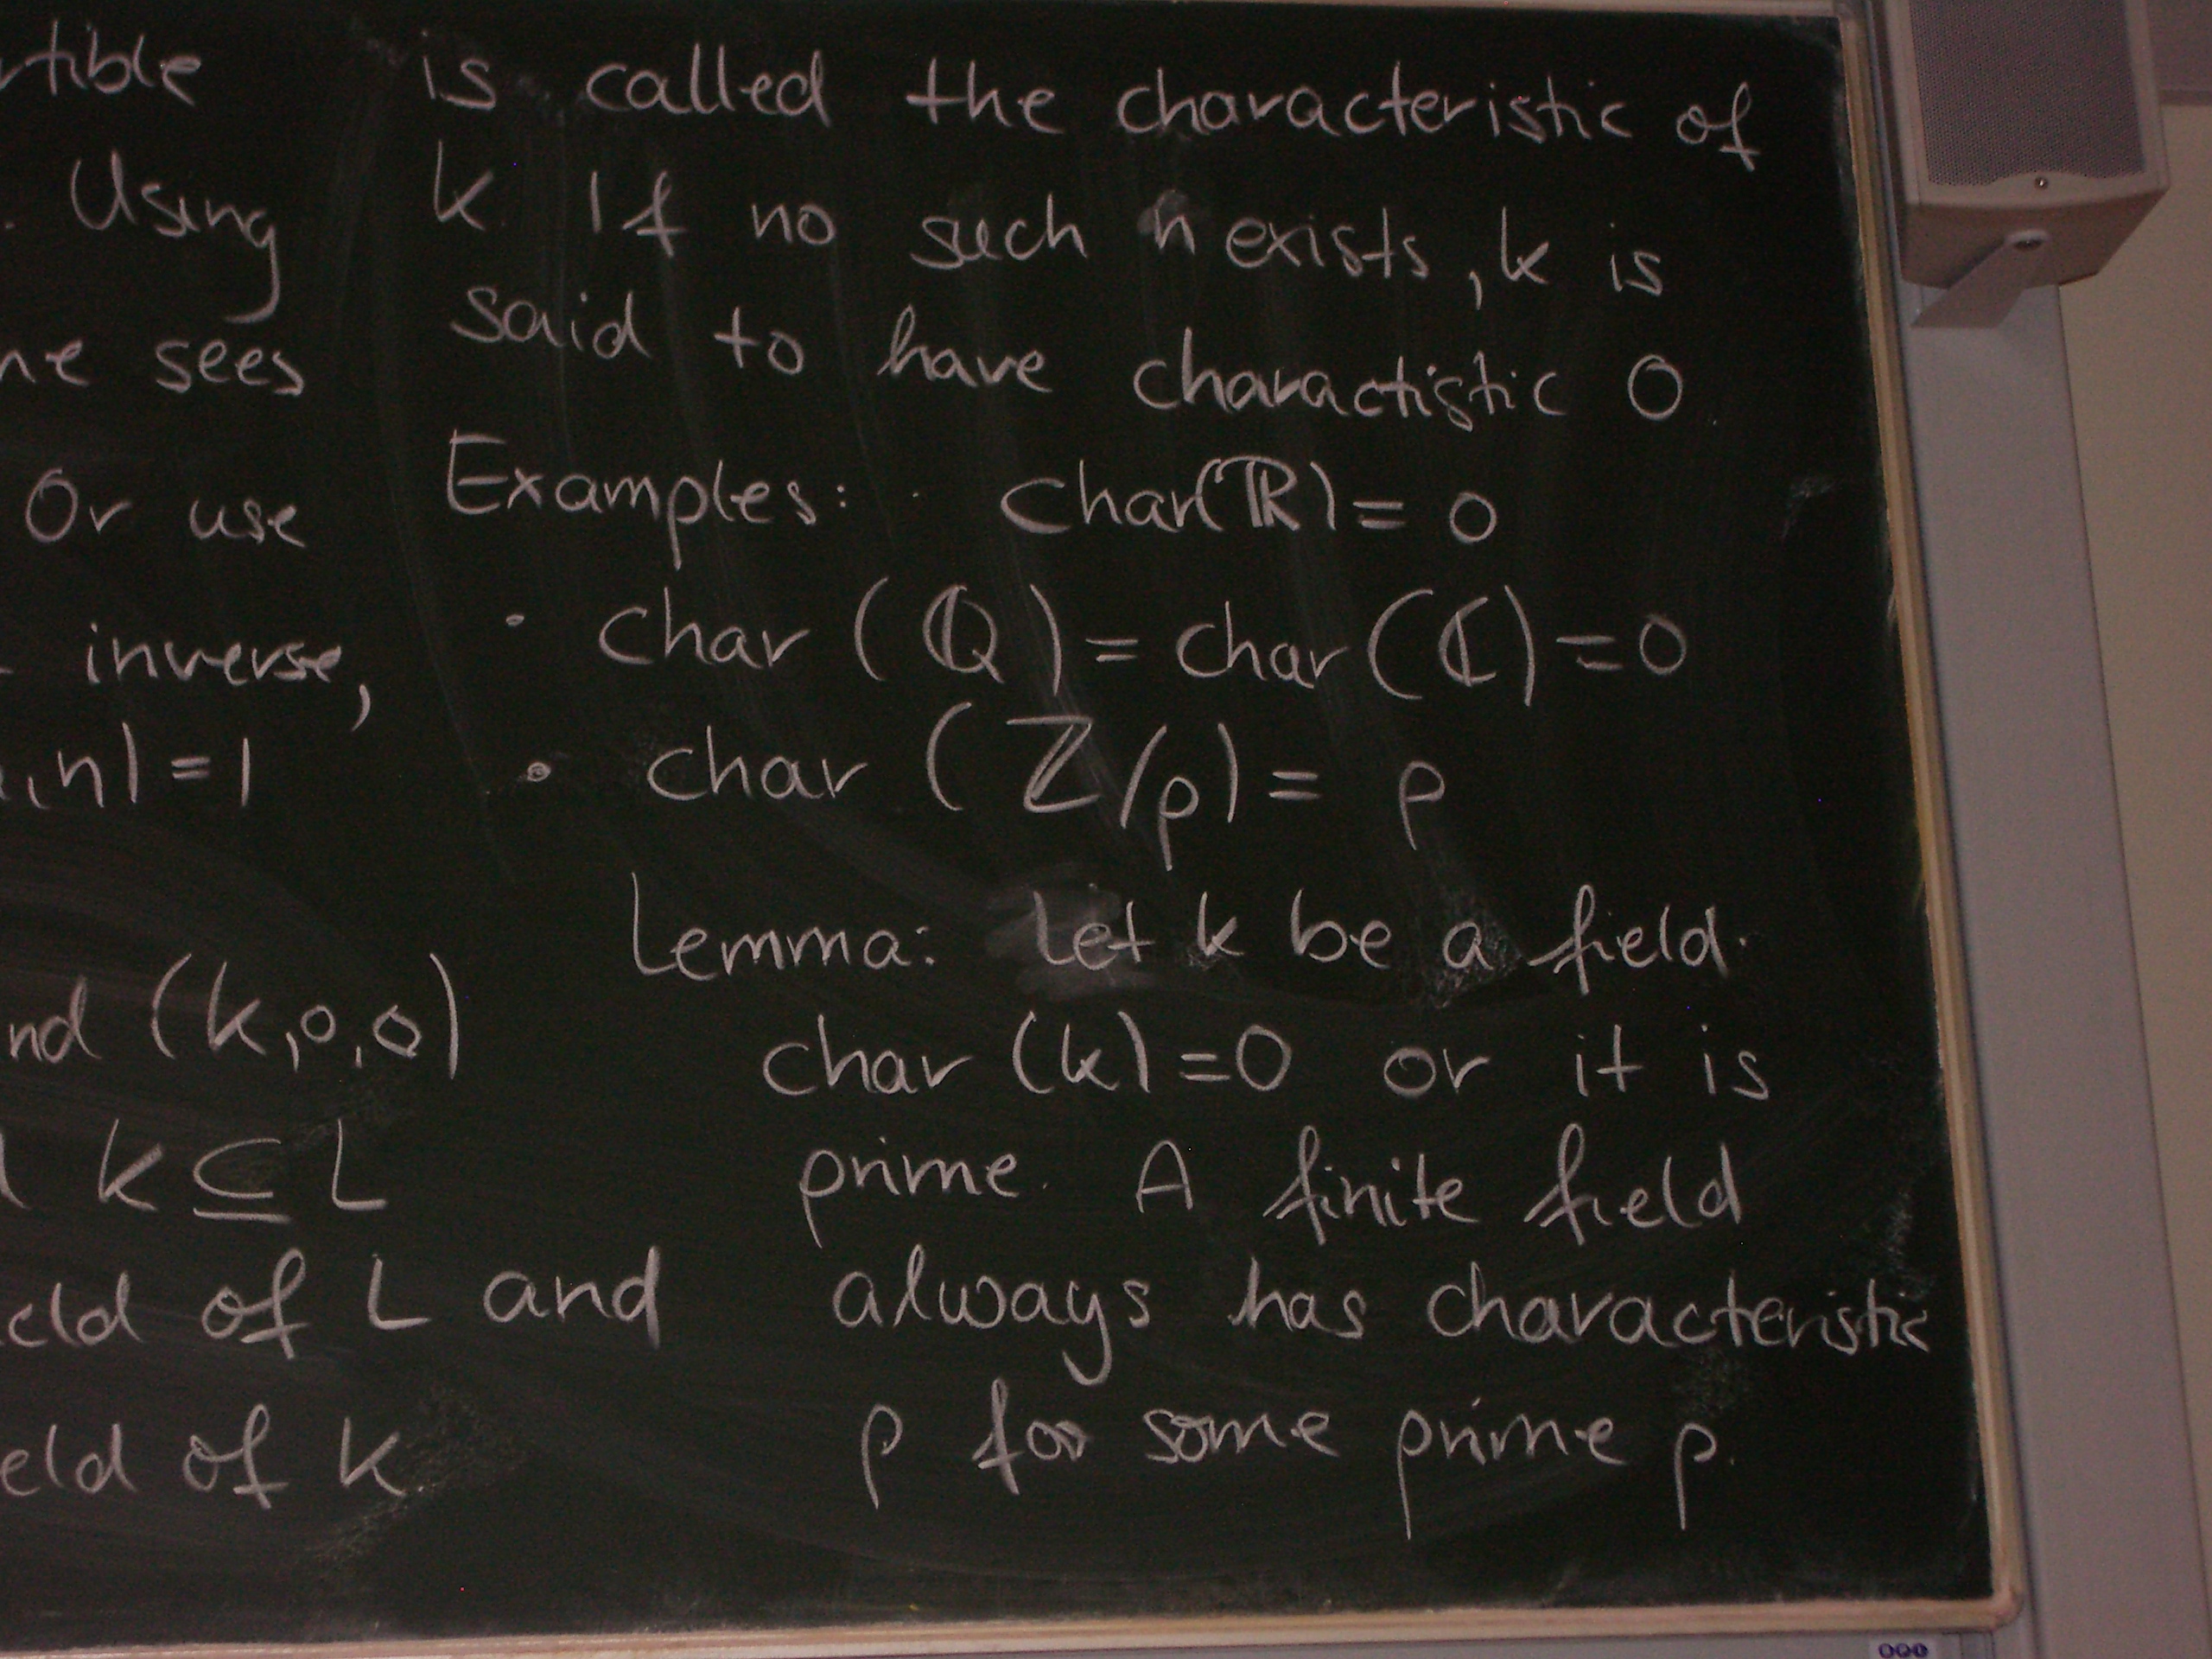 rtible
. Using
ne sees
Or use
inverse,
,n) = 1
nd (k,0,0)
k ⊆ L
eld of L and
eld of k
is called the characteristic of
k If no such n exists, k is
said to have charactistic 0
Examples: · char(ℝ) = 0
· char (ℚ) = char (ℂ) = 0
· char (ℤ/p) = p
Lemma: Let k be a field.
char (k) = 0 or it is
prime. A finite field
always has characteristic
p for some prime p.